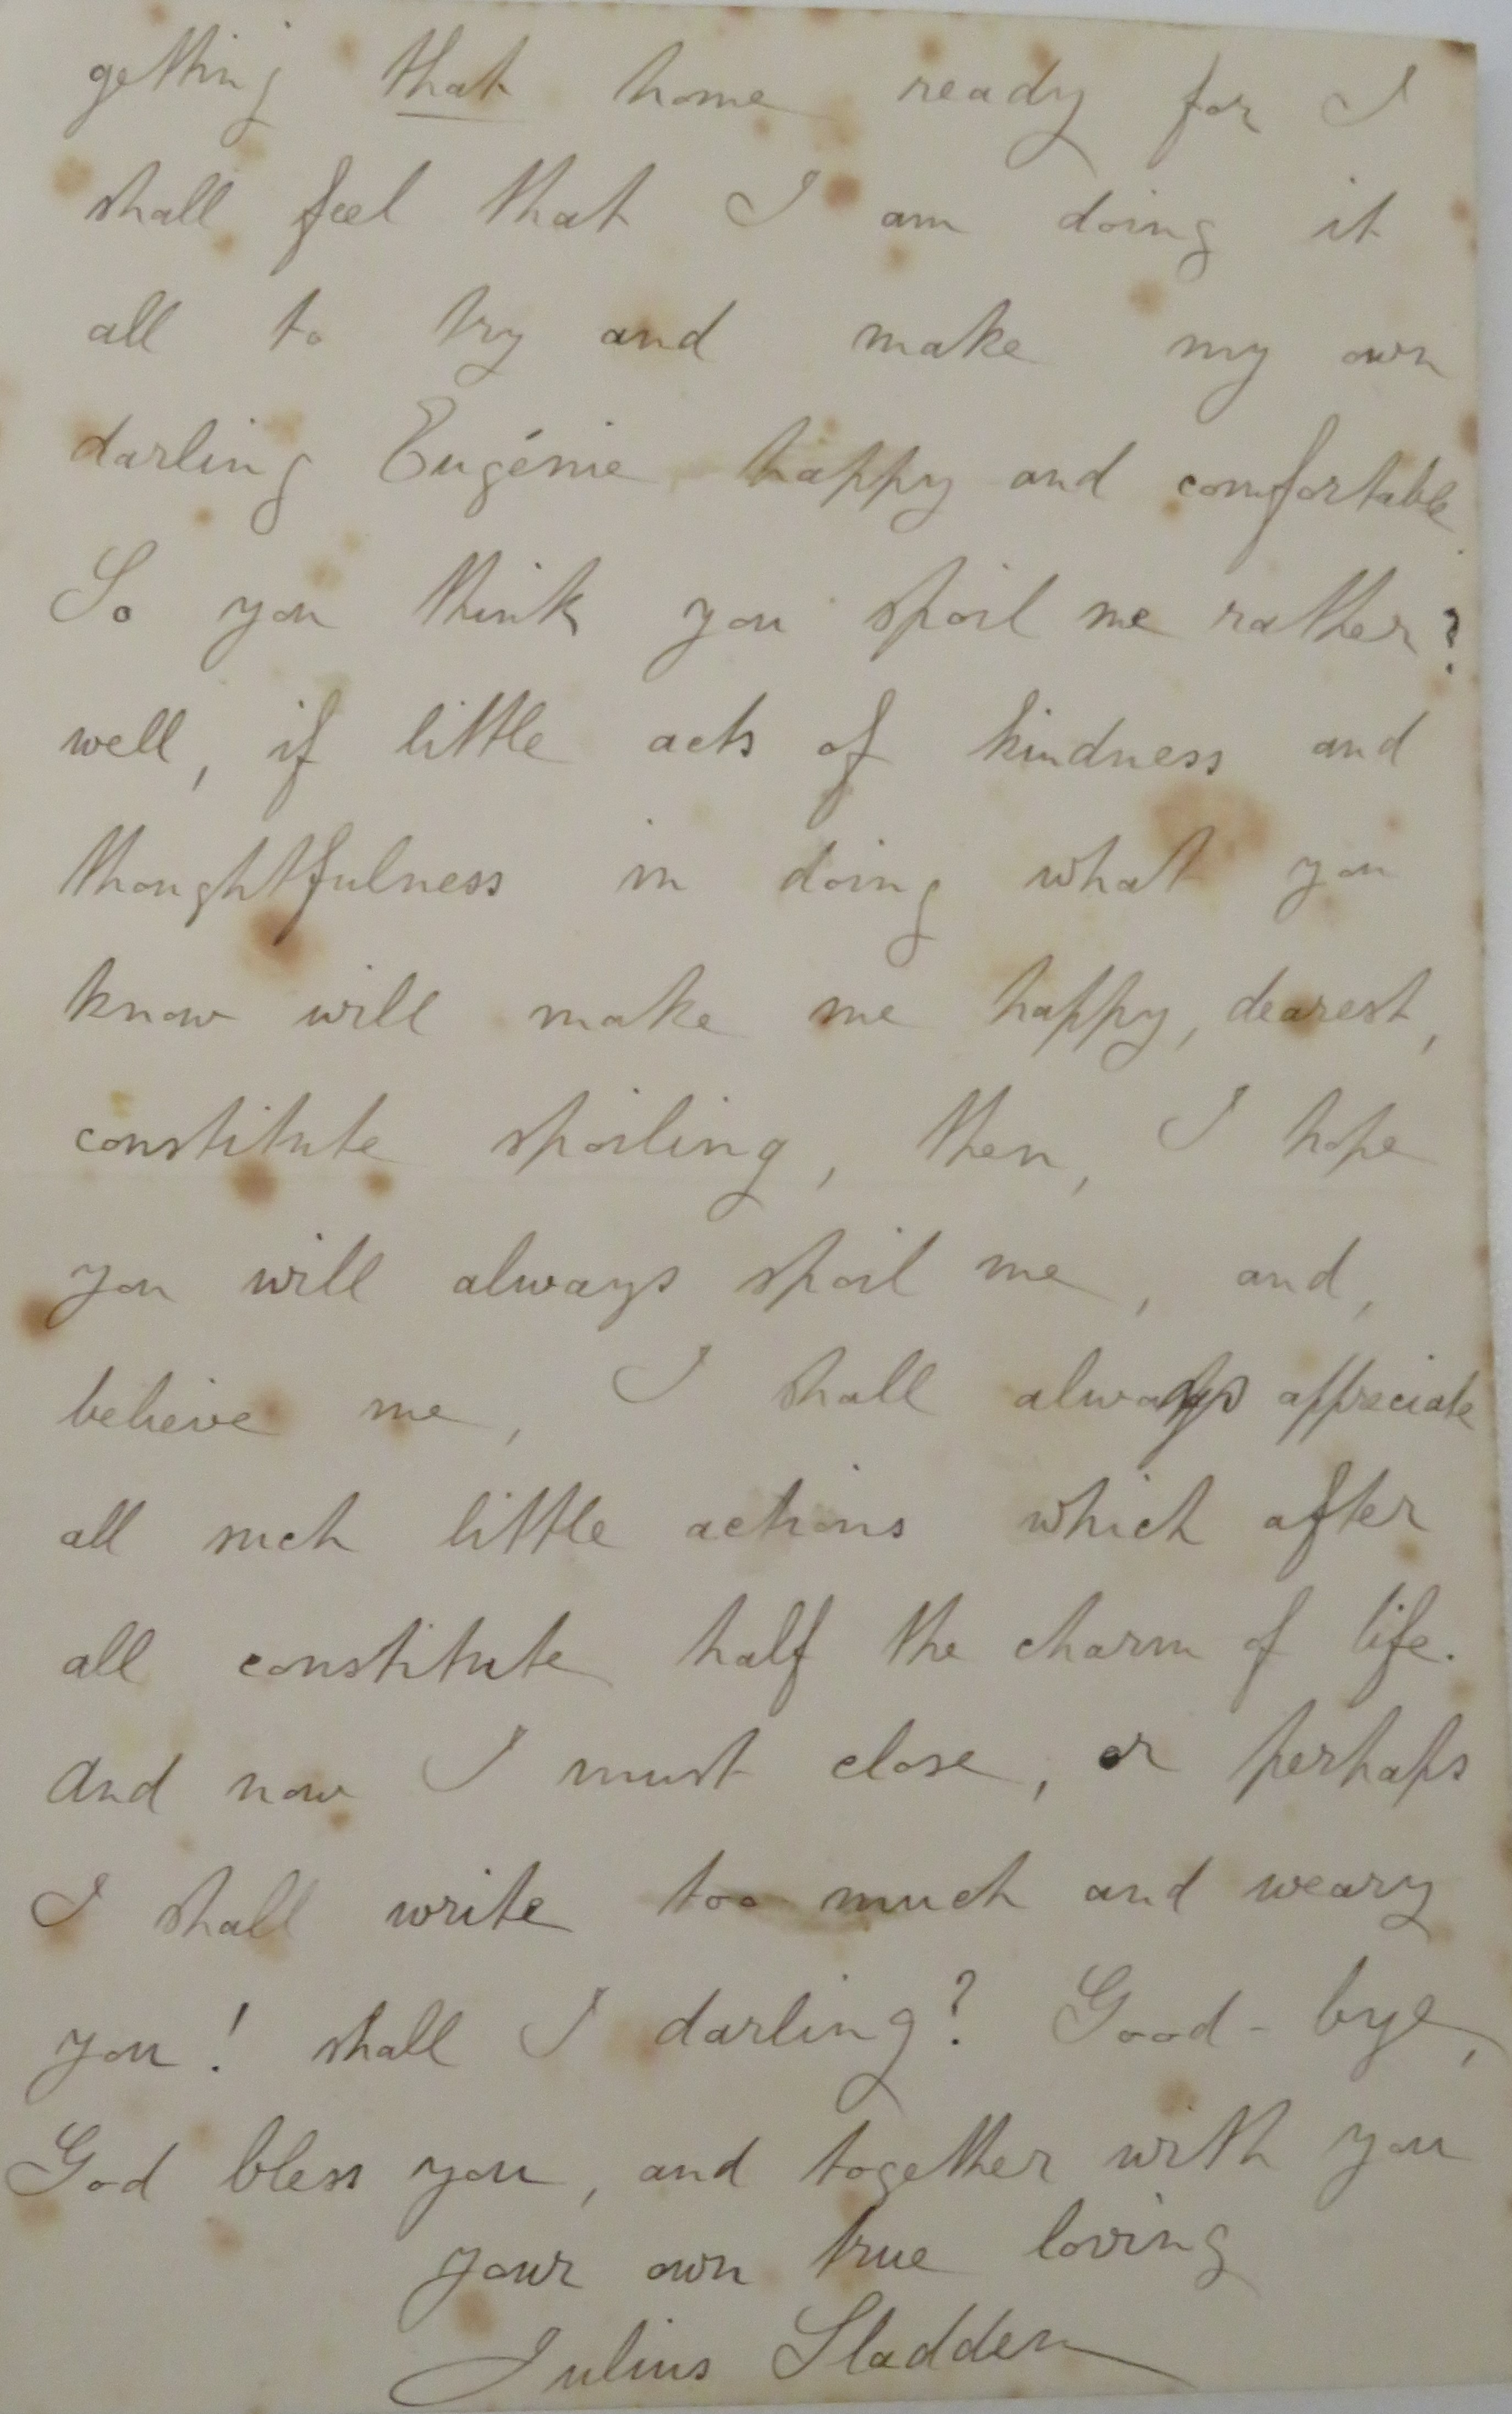 getting that home ready for I
shall feel that I am doing it
all to try and make my own
darling Eugénie happy and comfortable.
So you think you spoil me rather?
well, if little acts of kindness and
thoughtfulness in doing what you
know will make me happy, dearest,
constitute spoiling, then, I hope
you will always spoil me, and,
believe me, I shall always appreciate
all such little actions which after
all constitute half the charm of life.
And now I must close, or perhaps
I shall write too much and weary
you! shall I darling? Good-bye,
God bless you, and together with you
your own true loving
Julius Sladden